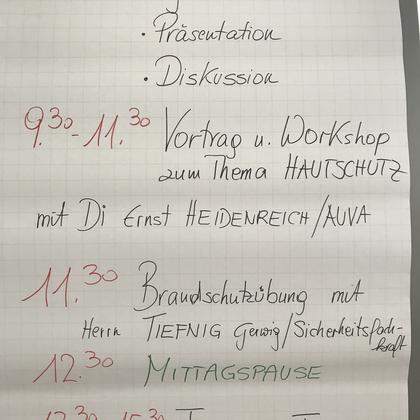 · Präsentation
· Diskussion
9.30-11.30 Vortrag u. Workshop
zum Thema HAUTSCHUTZ
mit Di Ernst HEIDENREICH/AUVA
11.30 Brandschutzübung mit
Herrn TIEFNIG Gerwig/Sicherheitsfach-
kraft
12.30 MITTAGSPAUSE